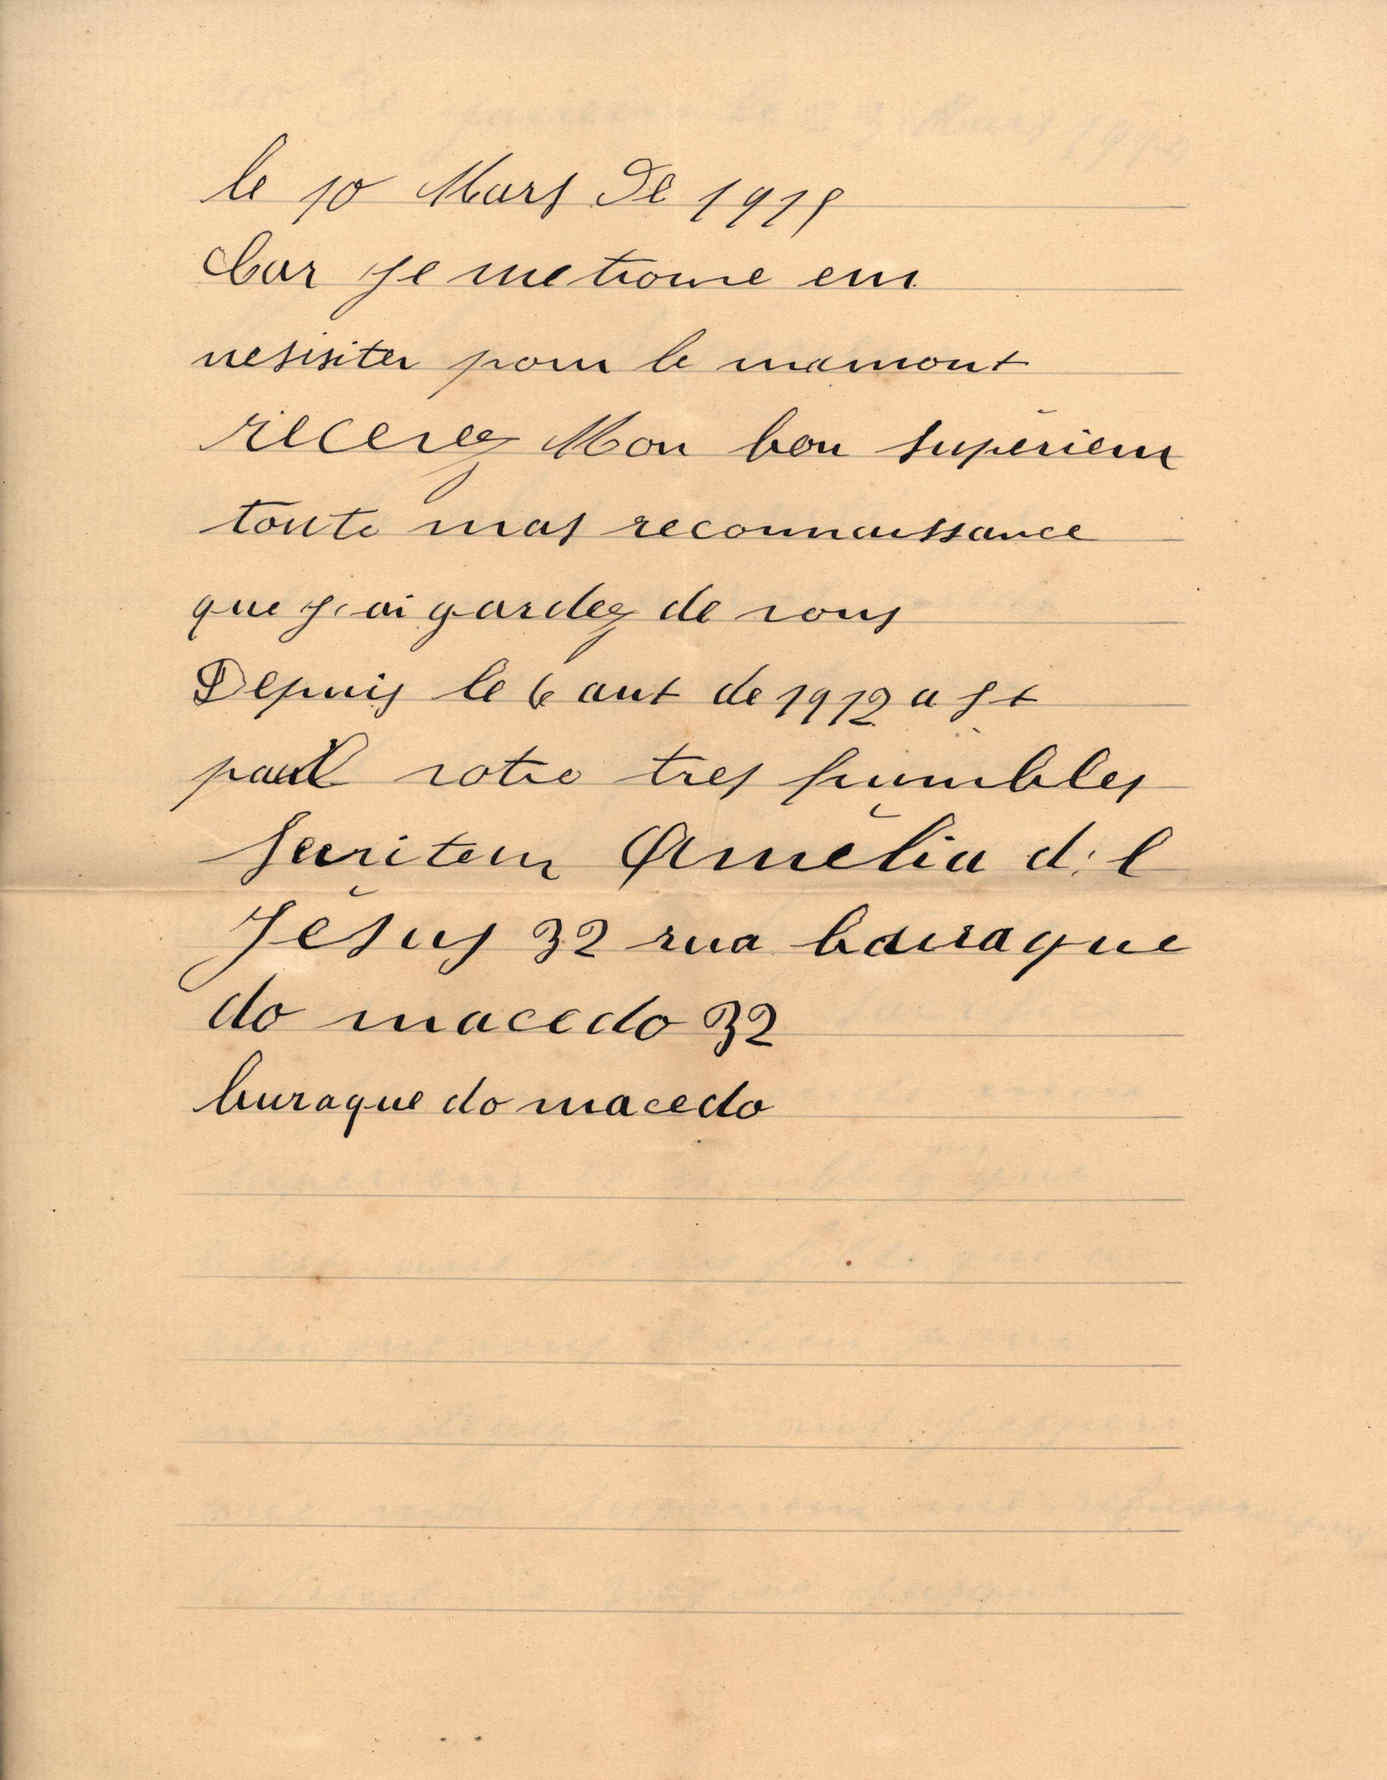 le 10 Mars De 1915
Car je me trouve em
nesisiter pour le mamont
recevez Mon bon supérieur
toute mas reconnaissance
que j'ai gardez de vous
Depuis le 6 aut de 1912 a St
paul votre tres humbles
serviteur Amélia d: l
Jésus 32 rua bauraque
do macedo 32
buraque do macedo